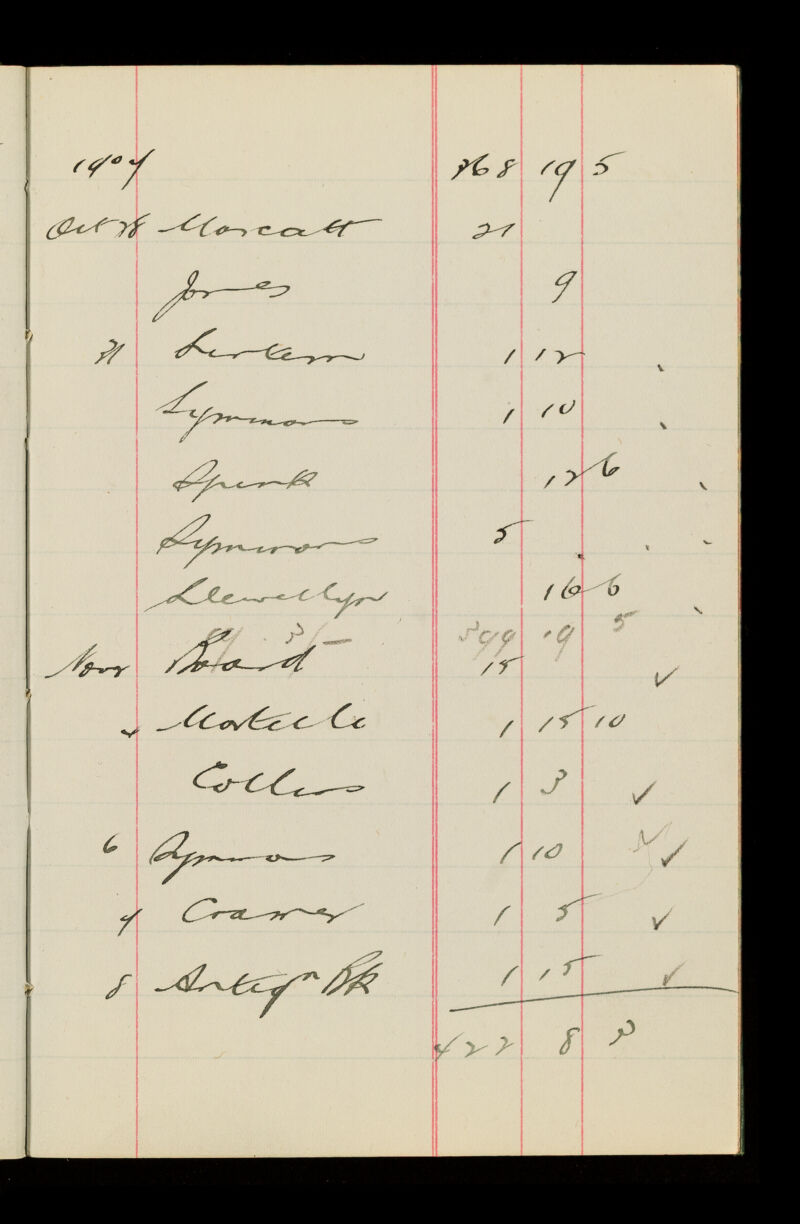 1907 368 19 5
Oct 28 21
Jones 9
31 1 12
Symmons 1 10
Spink 12 6
Symmons 5
Llewellyn 16 6
399 19 5
Novr Board 15 ✓
1 15 10
Collins 1 3 ✓
6 Symmons 1 10 ✓
7 Cramer 1 5 ✓
8 Antiqn Bk 1 15 ✓
422 8 3